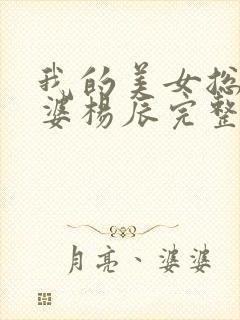 我的美女总
婆杨辰完整
月亮、婆婆